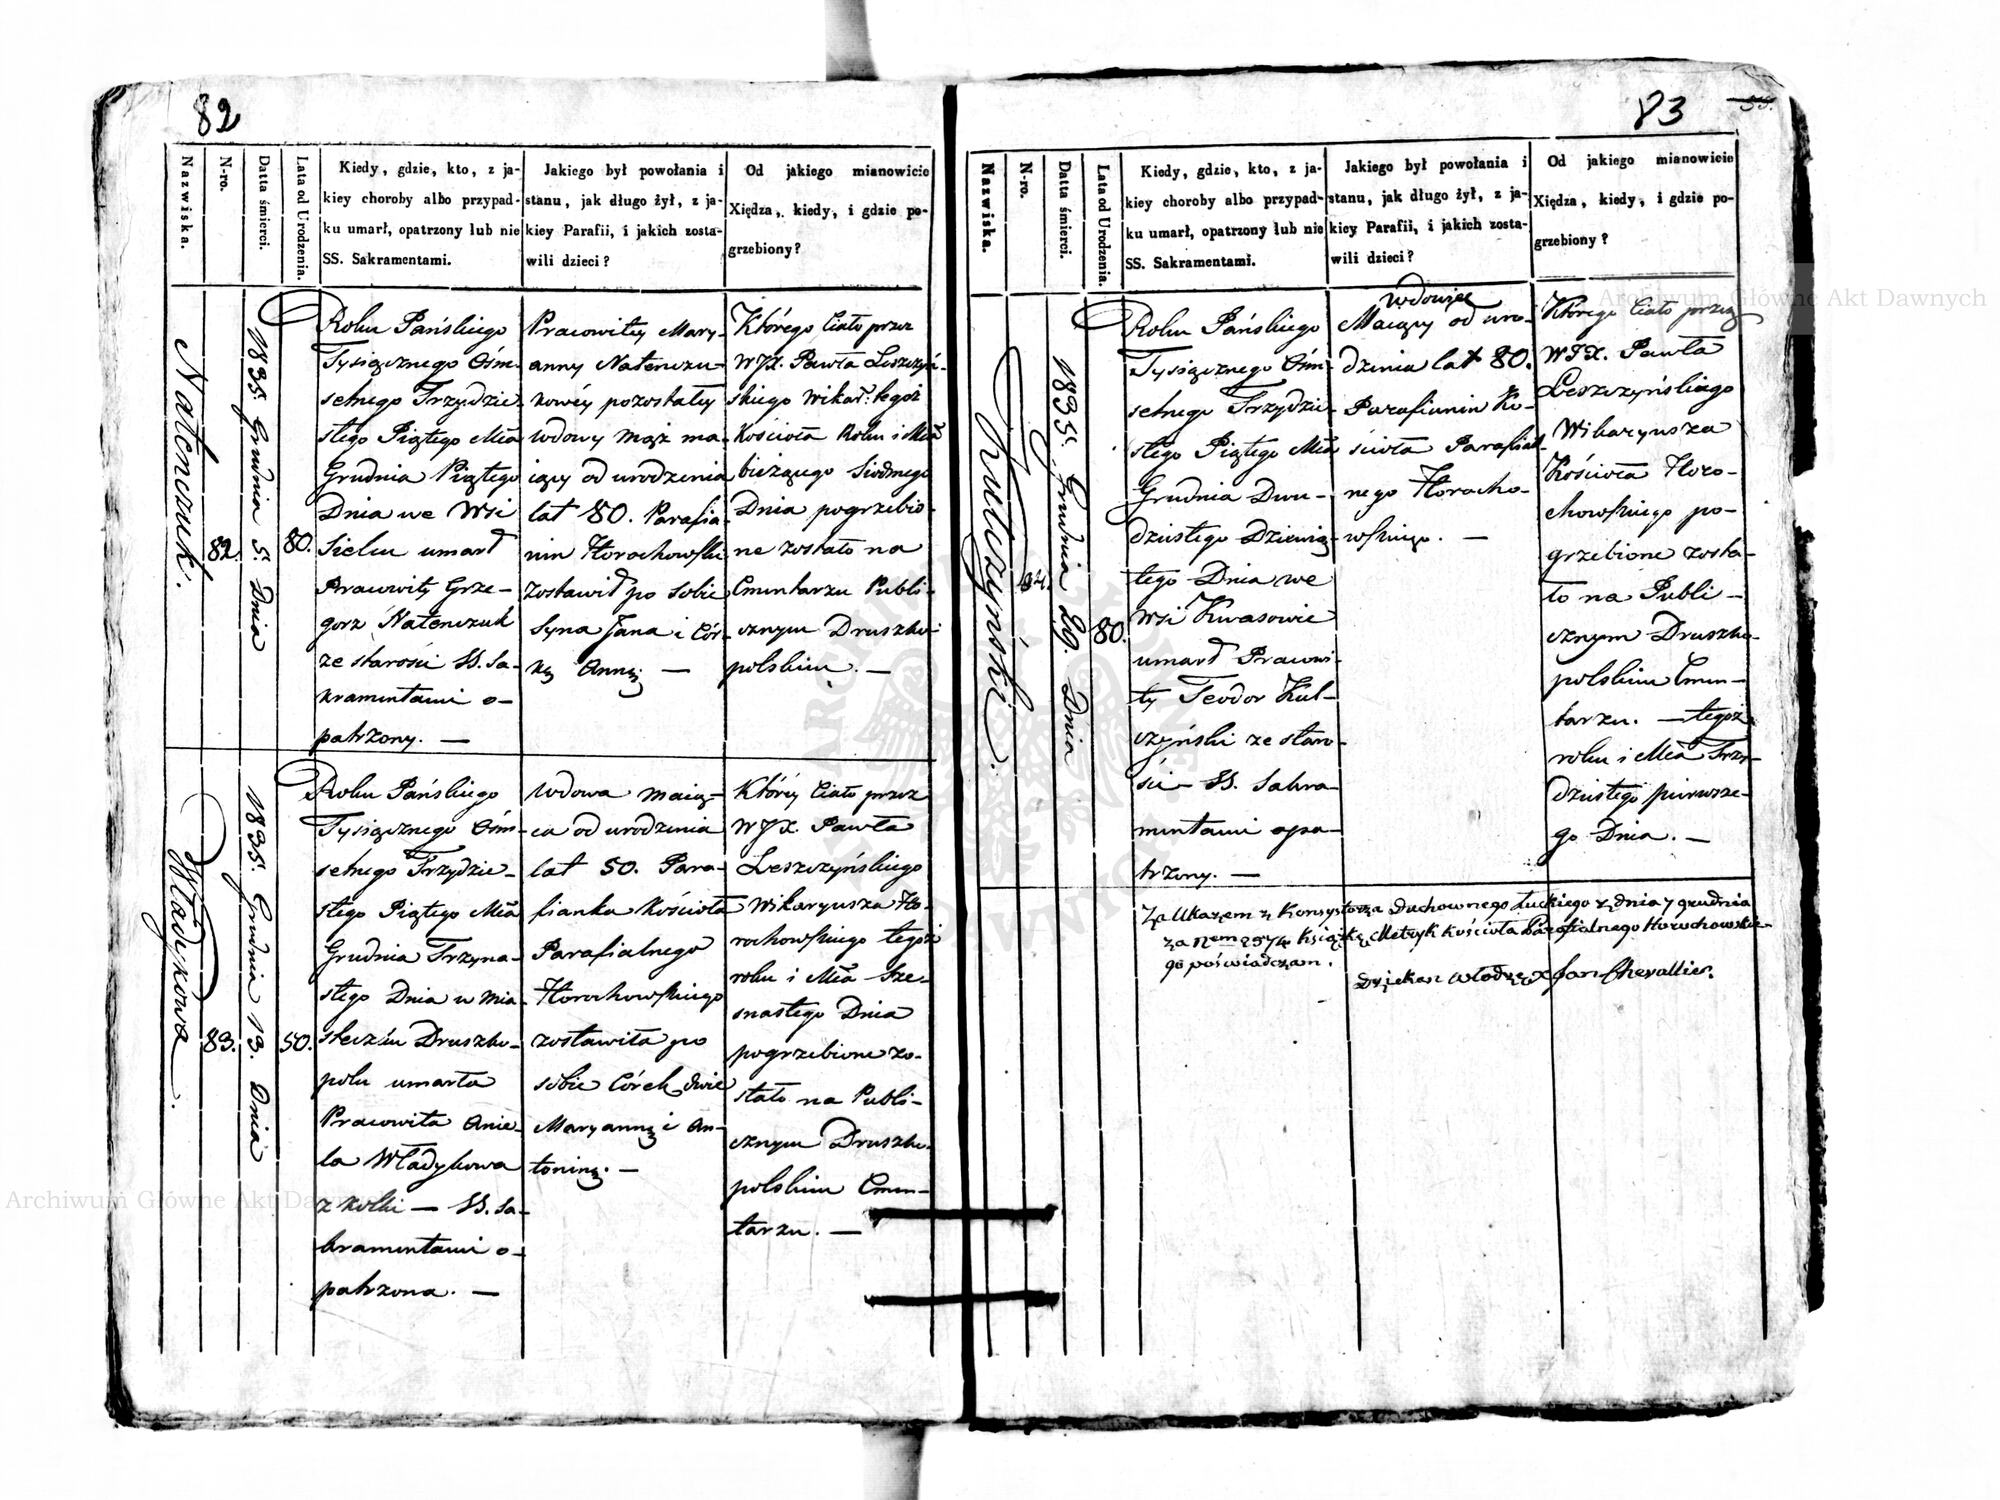 82
Nazwiska.
N-ro.
Datta śmierci.
Lata od Urodzenia.
Kiedy, gdzie, kto, z ja-
kiey choroby albo przypad-
ku umarł, opatrzony lub nie
SS. Sakramentami.
Jakiego był powołania i
stanu, jak długo żył, z ja-
kiey Parafii, i jakich zosta-
wili dzieci?
Od jakiego mianowicie
Xiędza, kiedy, i gdzie po-
grzebiony?
Natenczuk.
82.
1835. Grudnia 5. Dnia
80.
Roku Pańskiego
Tysiącznego Ośm-
setnego Trzydzie-
stego Piątego Mca
Grudnia Piątego
Dnia we Wsi
Sielcu umarł
Pracowity Grze-
gorz Natenczuk
ze starości SS. Sa-
kramentami o-
patrzony. —
Pracowitey Mary-
anny Natenczu-
kowéy pozostałey
wdowy mąż ma-
iący od urodzenia
lat 80. Parafia-
nin Horochowski
zostawił po sobie
Syna Jana i Cór-
kę Annę —
Którego Ciało przez
WJX. Pawła Leszczyń-
skiego Wikar. tegoż
Kościoła Roku i Mca
bieżącego Siódmego
Dnia pogrzebio-
ne zostało na
Cmentarzu Publi-
cznym Druszko-
polskim. —
Władykowa.
83.
1835. Grudnia 13. Dnia
50.
Roku Pańskiego
Tysiącznego Ośm-
setnego Trzydzie-
stego Piątego Mca
Grudnia Trzyna-
stego Dnia w Mia-
steczku Druszko-
polu umarła
Pracowita Anie-
la Władykowa
z kolki — SS. Sa-
kramentami o-
patrzona. —
Wdowa maią-
ca od urodzenia
lat 50. Para-
fianka Kościoła
Parafialnego
Horochowskiego
zostawiła po
sobie Córek dwie
Maryannę i An-
toninę. —
Któréy Ciało przez
WJX. Pawła
Leszczyńskiego
Wikaryusza Ho-
rochowskiego tegoż
roku i Mca Sze-
snastego Dnia
pogrzebione zo-
stało na Publi-
cznym Druszko-
polskim Cmen-
tarzu. —
83
Nazwiska.
N-ro.
Datta śmierci.
Lata od Urodzenia.
Kiedy, gdzie, kto, z ja-
kiey choroby albo przypad-
ku umarł, opatrzony lub nie
SS. Sakramentami.
Jakiego był powołania i
stanu, jak długo żył, z ja-
kiey Parafii, i jakich zosta-
wili dzieci?
Od jakiego mianowicie
Xiędza, kiedy, i gdzie po-
grzebiony?
Kulczyński.
84.
1835. Grudnia 29. Dnia
80.
Roku Pańskiego
Tysiącznego Ośm-
setnego Trzydzie-
stego Piątego Mca
Grudnia Dwu-
dziestego Dziewią-
tego Dnia we
Wsi Kwasowie
umarł Pracowi-
ty Teodor Kul-
czyński ze staro-
ści — SS. Sakra-
mentami opa-
trzony. —
Wdowiec
Maiący od uro-
dzenia lat 80.
Parafianin Ko-
ścioła Parafial-
nego Horocho-
wskiego. —
Którego Ciało przez
WJX. Pawła
Leszczyńskiego
Wikaryusza
Kościoła Horo-
chowskiego po-
grzebione zosta-
ło na Publi-
cznym Druszko-
polskim Cmen-
tarzu. — tegoż
roku i Mca Trzy-
dziestego pierwsze-
go Dnia. —
Za Ukazem z Konsystorza Duchownego Łuckiego z dnia 7 grudnia
za Nem 2574 Książkę Metryk Kościoła Parafialnego Horochowskie-
go poświadczam.
Dziekan Włodz. X Jan Chevallier.
Archiwum Główne Akt Dawnych
Archiwum Główne Akt Dawnych